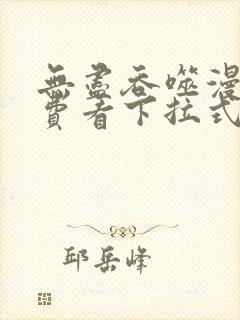 無盡吞噬漫
費看下拉式
邱岳峰